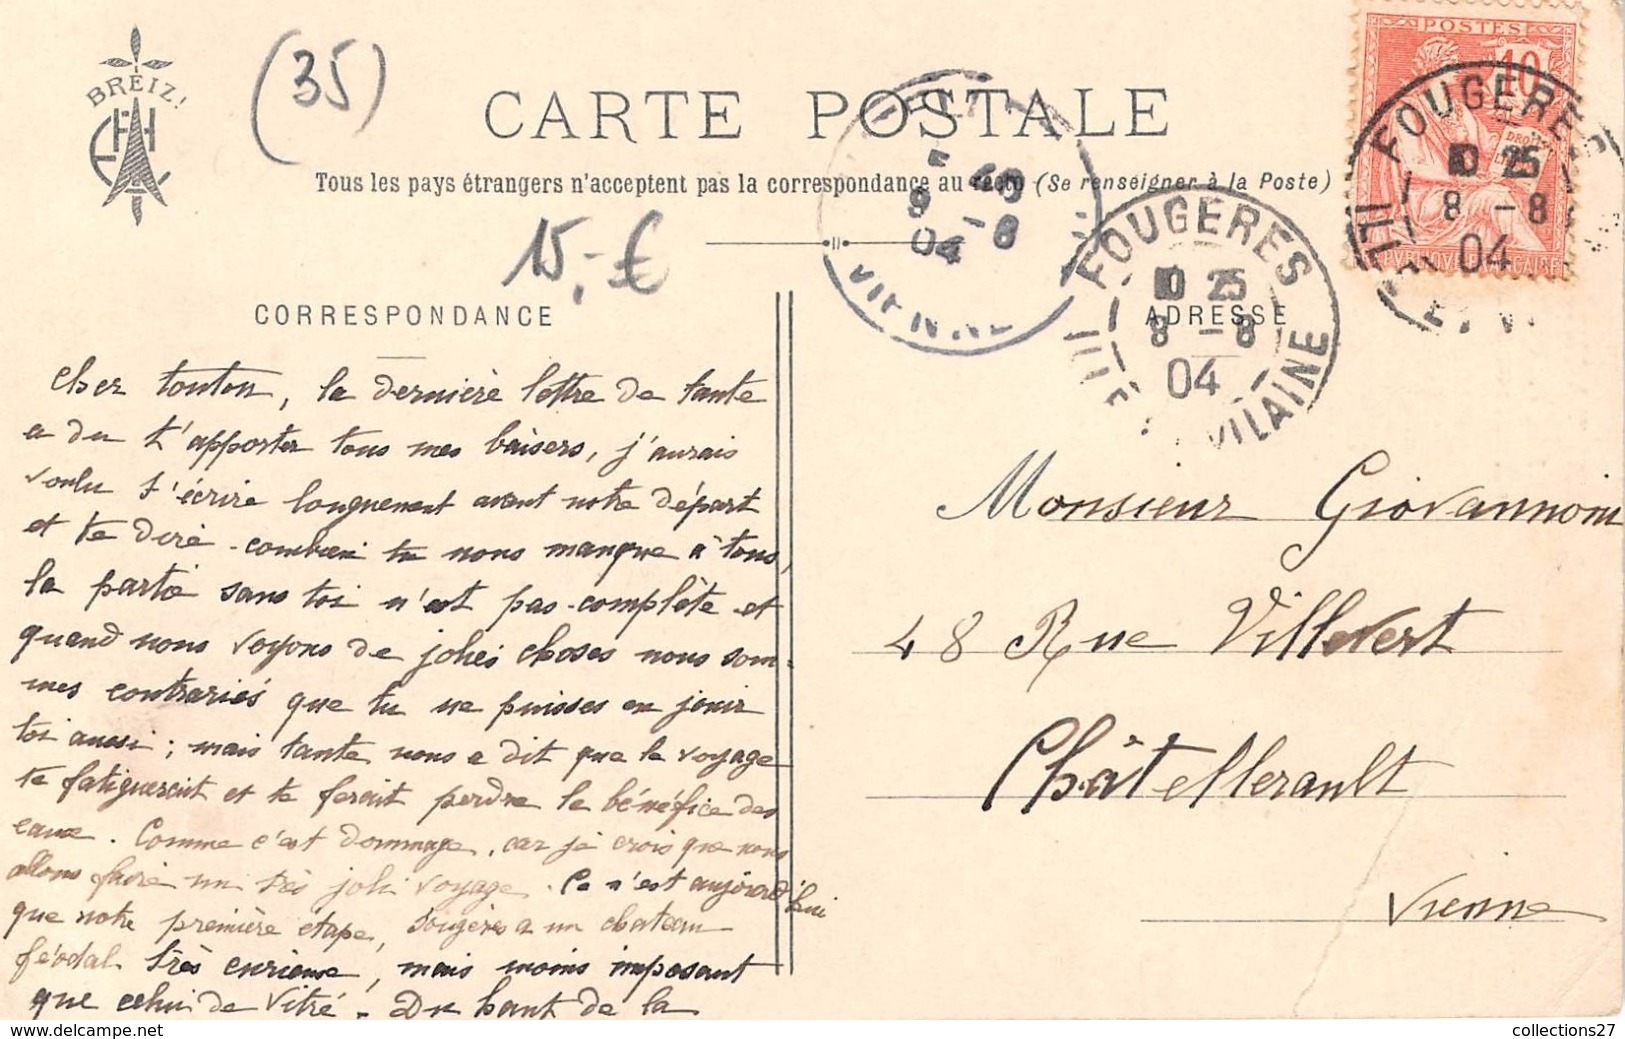 BREIZ!
(35)
CARTE POSTALE
Tous les pays étrangers n'acceptent pas la correspondance au recto (Se renseigner à la Poste)
15,-€
POSTES
10
FOUGERES
10 25
8 -8
04
ILLE
FOUGERES
10 25
8 -8
04
ILLE VILAINE
40
9 -8
04
VIENNE
CORRESPONDANCE
ADRESSE
Cher tonton, la dernière lettre de tante
a du t'apporter tous mes baisers, j'aurais
voulu t'écrire longuement avant notre départ
et te dire combien tu nous manque à tous,
la partie sans toi n'est pas complète et
quand nous voyons de jolies choses nous som-
mes contrariés que tu ne puisses en jouir
toi aussi ; mais tante nous a dit que le voyage
te fatiguerait et te ferait perdre le bénéfice des
eaux. Comme c'est dommage, car je crois que nous
allons faire un très joli voyage. Ce n'est aujourd'hui
que notre première étape, Fougères a un chateau
féodal très curieux, mais moins imposant
que celui de Vitré. Du haut de la
Monsieur Giovannoni
48 Rue Villevert
Châtellerault
Vienne
collections27